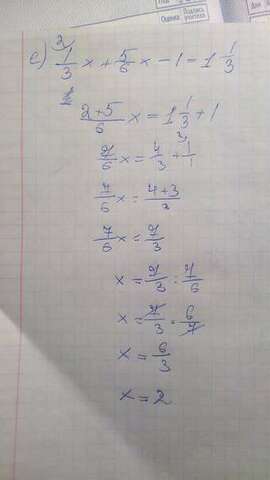 Оценка Подпись учителя
c) 1/3 x + 5/6 x - 1 = 1 1/3
2+5/6 x = 1 1/3 + 1
7/6 x = 4/3 + 1/1
7/6 x = 4+3/3
7/6 x = 7/3
x = 7/3 : 7/6
x = 7/3 · 6/7
x = 6/3
x = 2